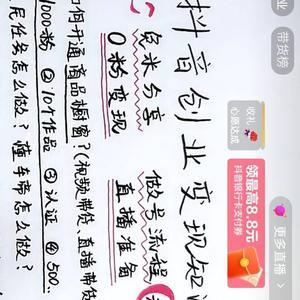 抖音创业变现知
干米分享
0粉变现
做号流程
直播准备
何开通商品橱窗?(视频带货、直播带货
①1000粉 ②10个作品 ③认证 ④500...
民任务怎么做? 懂车帝怎么做?
业
带货榜
收礼
心愿达成
领最高8.8元
抖音银行卡支付券
更多直播 >